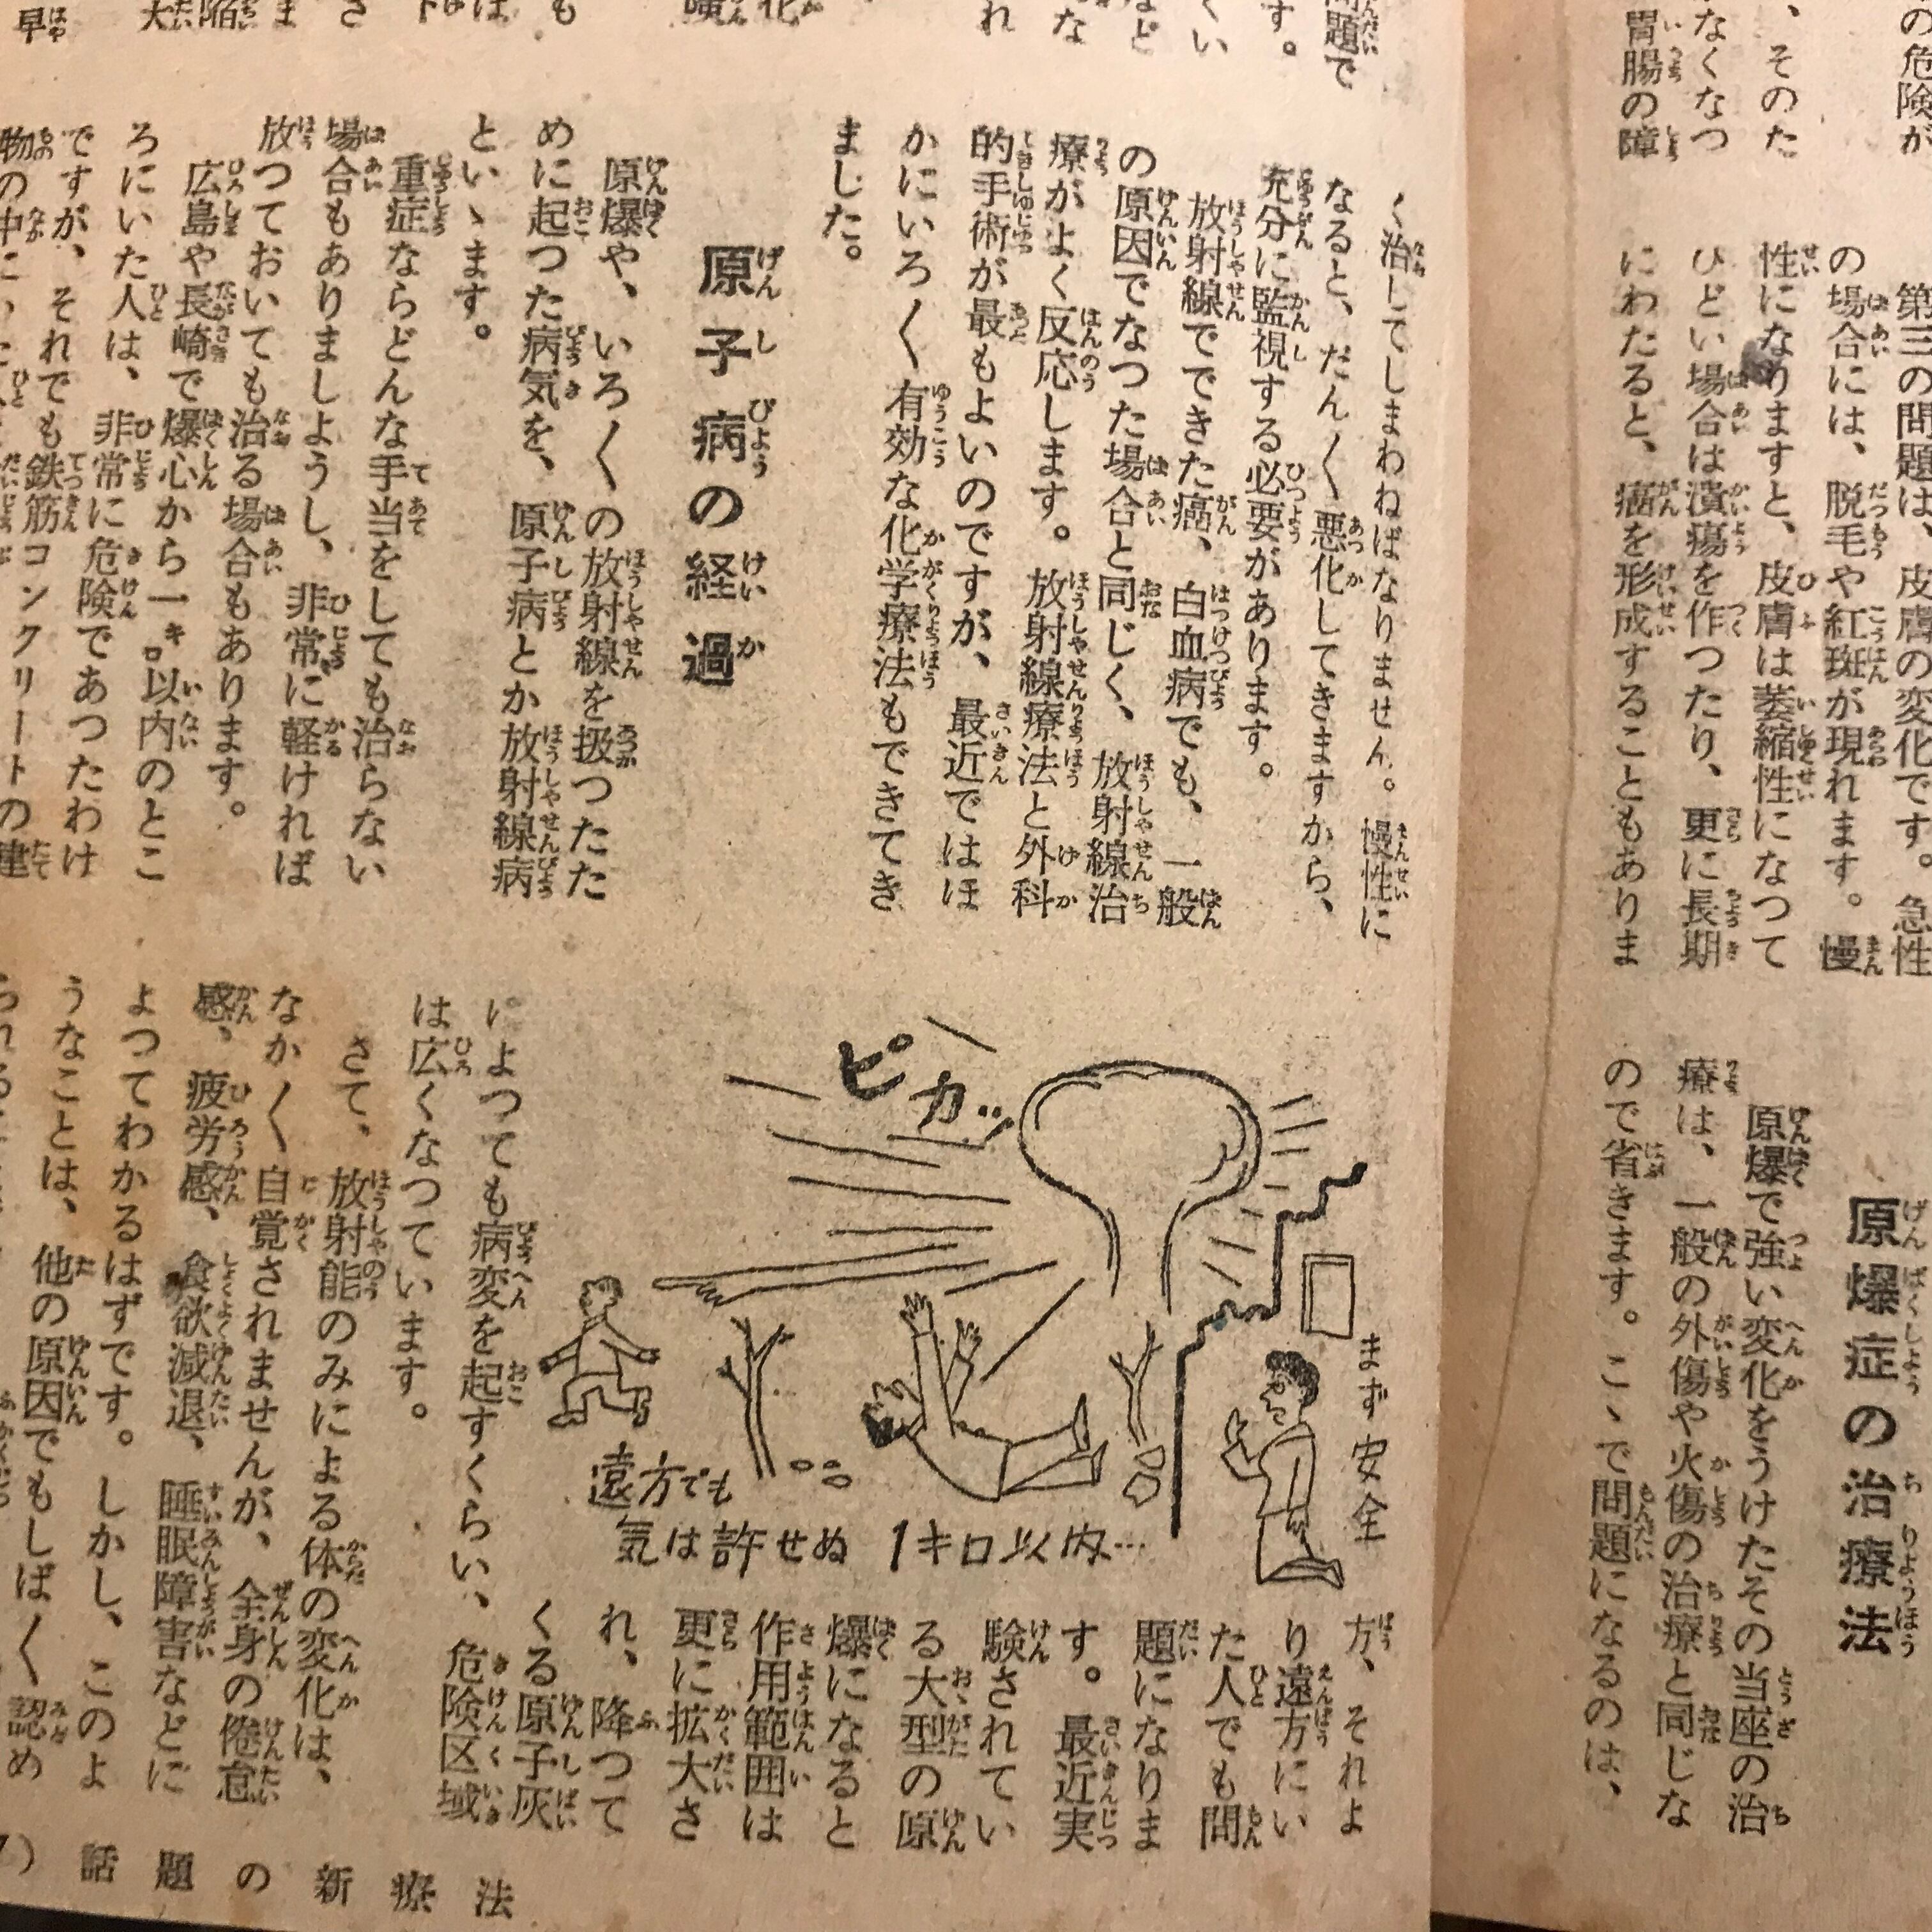 の危険が
、そのた
なくなつ
胃腸の障
第三の問題は、皮膚の変化です。急性
の場合には、脱毛や紅斑が現れます。慢
性になりますと、皮膚は萎縮性になつて
ひどい場合は潰瘍を作つたり、更に長期
にわたると、癌を形成することもありま
原爆症の治療法
原爆で強い変化をうけたその当座の治
療は、一般の外傷や火傷の治療と同じな
ので省きます。こゝで問題になるのは、
問題で
す。
くい
など
な
れ
く治してしまわねばなりません。慢性に
なると、だん〱悪化してきますから、
充分に監視する必要があります。
放射線でできた癌、白血病でも、一般
の原因でなつた場合と同じく、放射線治
療がよく反応します。放射線療法と外科
的手術が最もよいのですが、最近ではほ
かにいろ〱有効な化学療法もできてき
ました。
原子病の経過
原爆や、いろ〱の放射線を扱つたた
めに起つた病気を、原子病とか放射線病
といゝます。
重症ならどんな手当をしても治らない
場合もありましようし、非常に軽ければ
放つておいても治る場合もあります。
広島や長崎で爆心から一キロ以内のとこ
ろにいた人は、非常に危険であつたわけ
ですが、それでも鉄筋コンクリートの建
ピカッ
まず安全
1キロ以内…
遠方でも
気は許せぬ
方、それよ
り遠方にい
た人でも問
題になりま
す。最近実
験されてい
る大型の原
爆になると
作用範囲は
更に拡大さ
れ、降つて
くる原子灰
によつても病変を起すくらい、危険区域
は広くなつています。
さて、放射能のみによる体の変化は、
なか〱自覚されませんが、全身の倦怠
感、疲労感、食欲減退、睡眠障害などに
よつてわかるはずです。しかし、このよ
うなことは、他の原因でもしば〱認め
話題の新療法